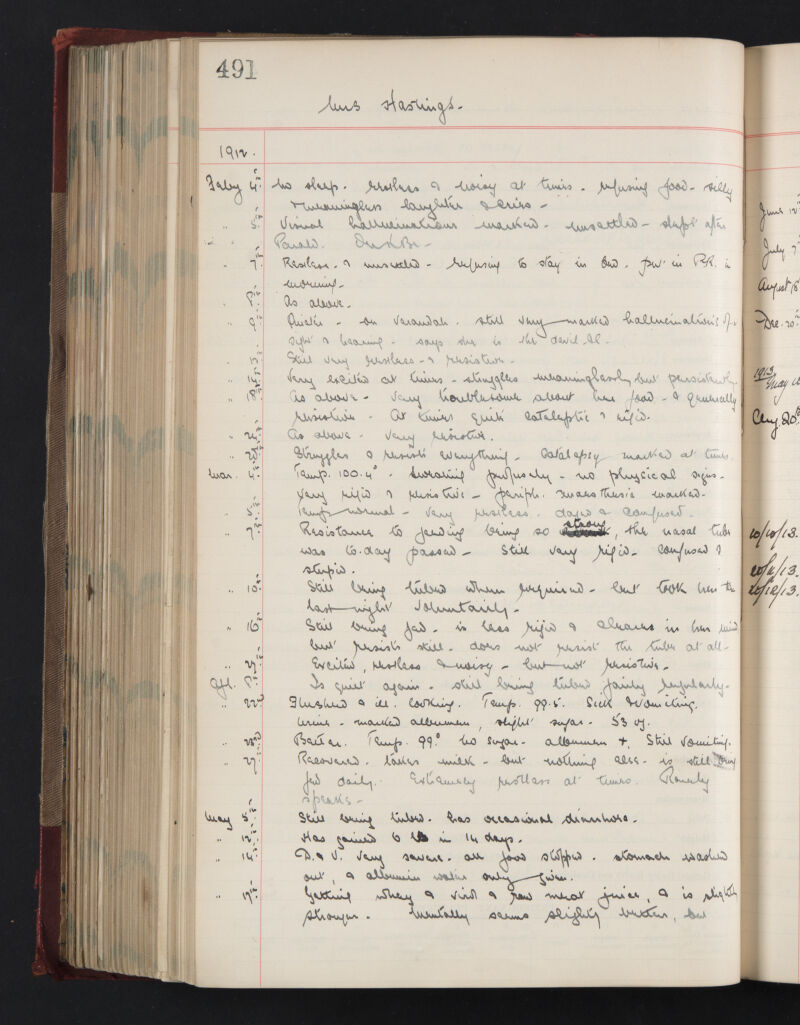 491
Mrs Hastings -
1912.
Feby 4th No sleep. Restless & noisy at times - refusing food - silly
& meaningless laughter & cries -
" 5th Visual hallucinations marked - unsettled - slept after
Parald.
" 7th Restless & unsettled - refusing to stay in bed. put in P.R. in
morning -
" 8th As above -
" 9th Quieter - on verandah. still very marked hallucinations of
sight & hearing - says she is the devil &c.
Still very restless - & resistive -
" 14th Very excited at times - struggles meaninglessly but persistently.
" 18th As above - Very troublesome about her food - & generally
resistive - At times quite cataleptic & rigid.
As above - Very resistive.
Struggles & resists everything - Catalepsy marked at times.
Mar. 4th Temp. 100.4° - Sweating profusely - no physical signs -
Very rigid & resistive - periph. anaesthesia marked -
" 5th Temp normal - Very restless. dazed & confused.
" 7th Resistance to feeding being so strong, the nasal tube
was to-day passed - Still very rigid - confused &
stupid.
" 10th Still being tubed when required - but took her
last night voluntarily -
" 16th Still being fed - is less rigid & clearer in her mind
but resists still - does not resist the tube at all -
" 27th Excited, restless & noisy - but not resistive -
Apl. 8th Is quiet again - still being tubed fairly regularly -
" 22nd Flushed & ill. looking. Temp. 99.5. Sick & vomiting.
Urine - marked albumen, slight sugar -
" 23rd Better. Temp. 99° No sugar - albumen +. Still vomiting.
" 27th Recovered - takes milk - but nothing else - is still being
fed daily. Extremely restless at times. Rarely
speaks -
May 5th Still being tubed. has occasional diarrhoea.
" 12th Has gained 6 lb in 14 days.
" 14th D. & V. very severe - all food stopped - stomach washed
out, & albumin water only given.
" 17th Getting whey & & raw meat juice, & is slightly
stronger - Mentally seems slightly better, but
June 12th
July 7
August 15
Dec. 20th
1913
May
Aug. 20th
10/10/13.
/13.
/12/13.